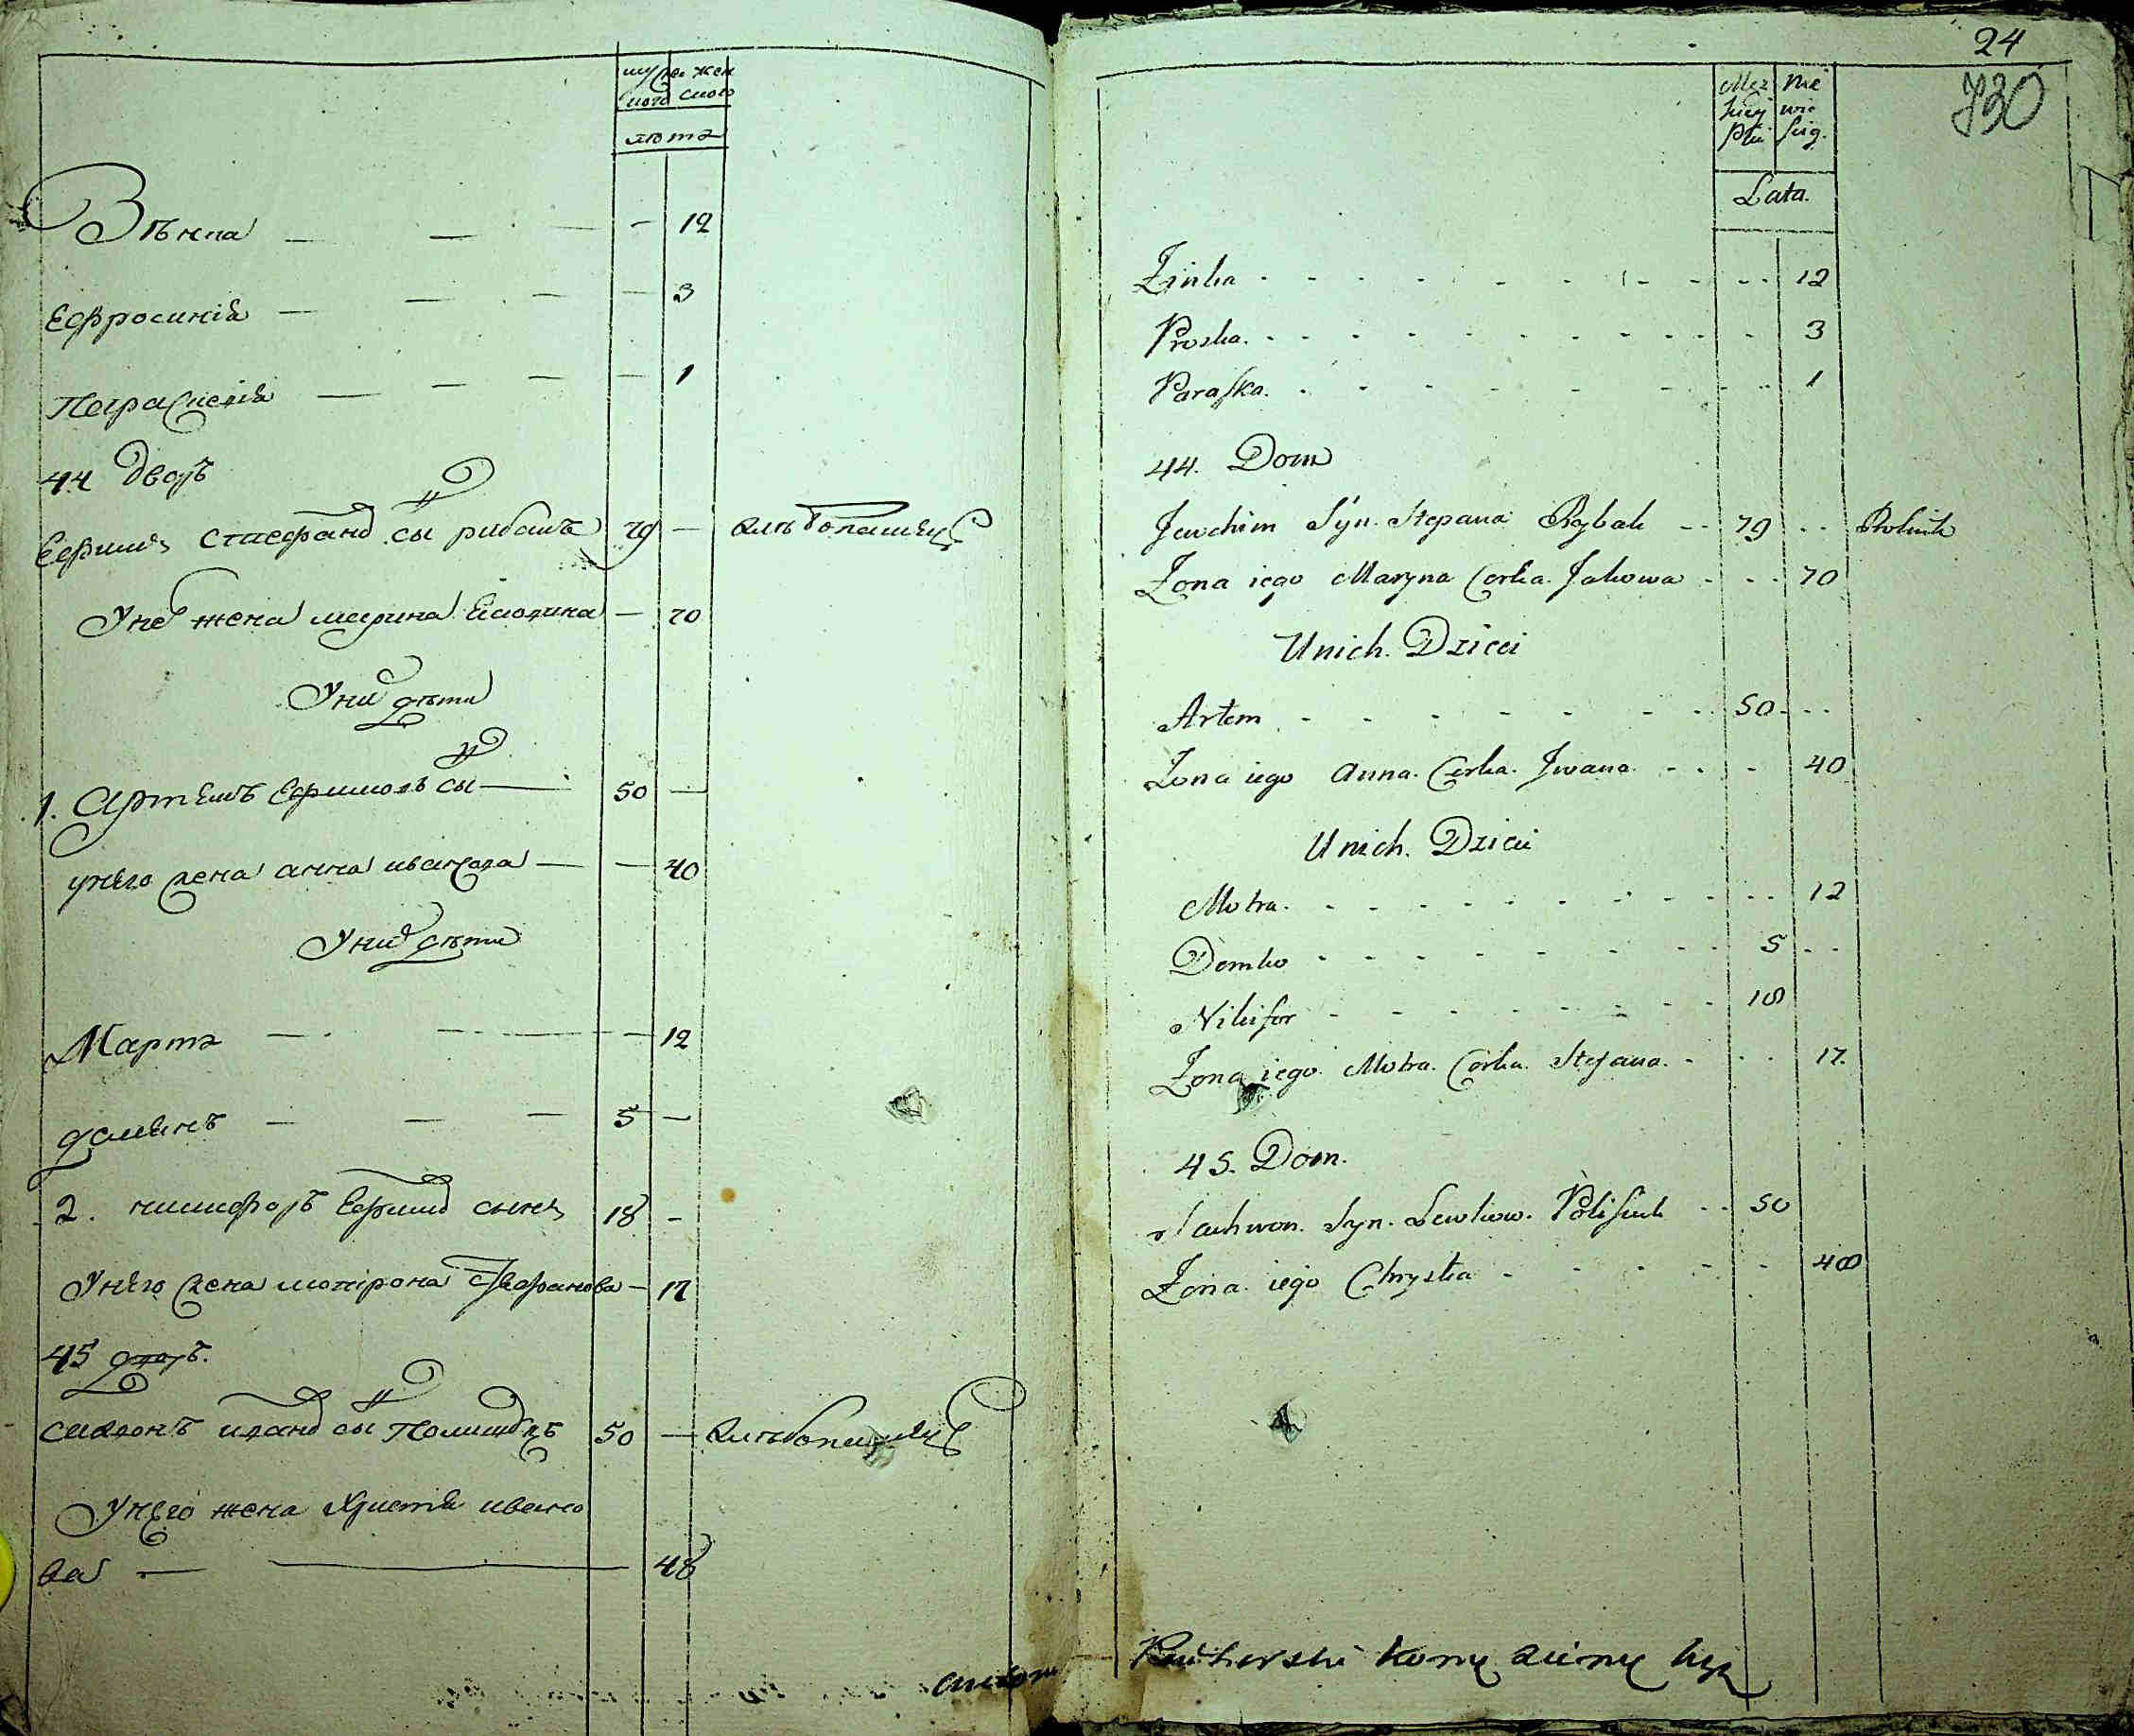 муже жен
ского ского
лѣта
Зѣнка — — — — 12
Ефросинія — — — — 3
Параскевія — — — — 1
44 дворъ
Ефимъ Стефанов сы рибакъ 79 — хлѣбопашец
У не жена марина Ековлива — 70
У них дѣти
1. Артемъ Ефимовъ сы — 50 —
у него жена анна иванова — — 40
У них дѣти
Марта — — — 12
Даминъ — — — 5 —
2. никифоръ Ефимов сынъ 18 —
У него жена мотрона Стефанова — 17
45 дворъ.
сидонъ иванов сы Полищукъ 50 — хлѣбопашец
У него жена Христия ивано
ва — — 48
24
730
Męz Nie
kiey wie
Płci ściey.
Lata.
Zinka - - - - - - - - - - - 12
Proska. - - - - - - - - - - - 3
Paraska. - - - - - - - - - - 1
44. Dom
Jewchim Syn. Stepana Rybak - - 79 - - Rolnik
Zona iego Maryna Corka. Jakowa - - - 70
U nich. Dzieci
Artem - - - - - - - - 50 - - -
Zona iego Anna. Corka. Iwana. - - - - 40
U nich. Dzieci
Motra. - - - - - - - - - - - 12
Demko - - - - - - - - 5 - -
Nikifor - - - - - - - - 18
Zona iego. Motra. Corka. Stefana. - - - 17.
45. Dom.
Sachwon. Syn. Lewkow. Polisuk - - 50
Zona. iego Chrystia - - - - - - 48